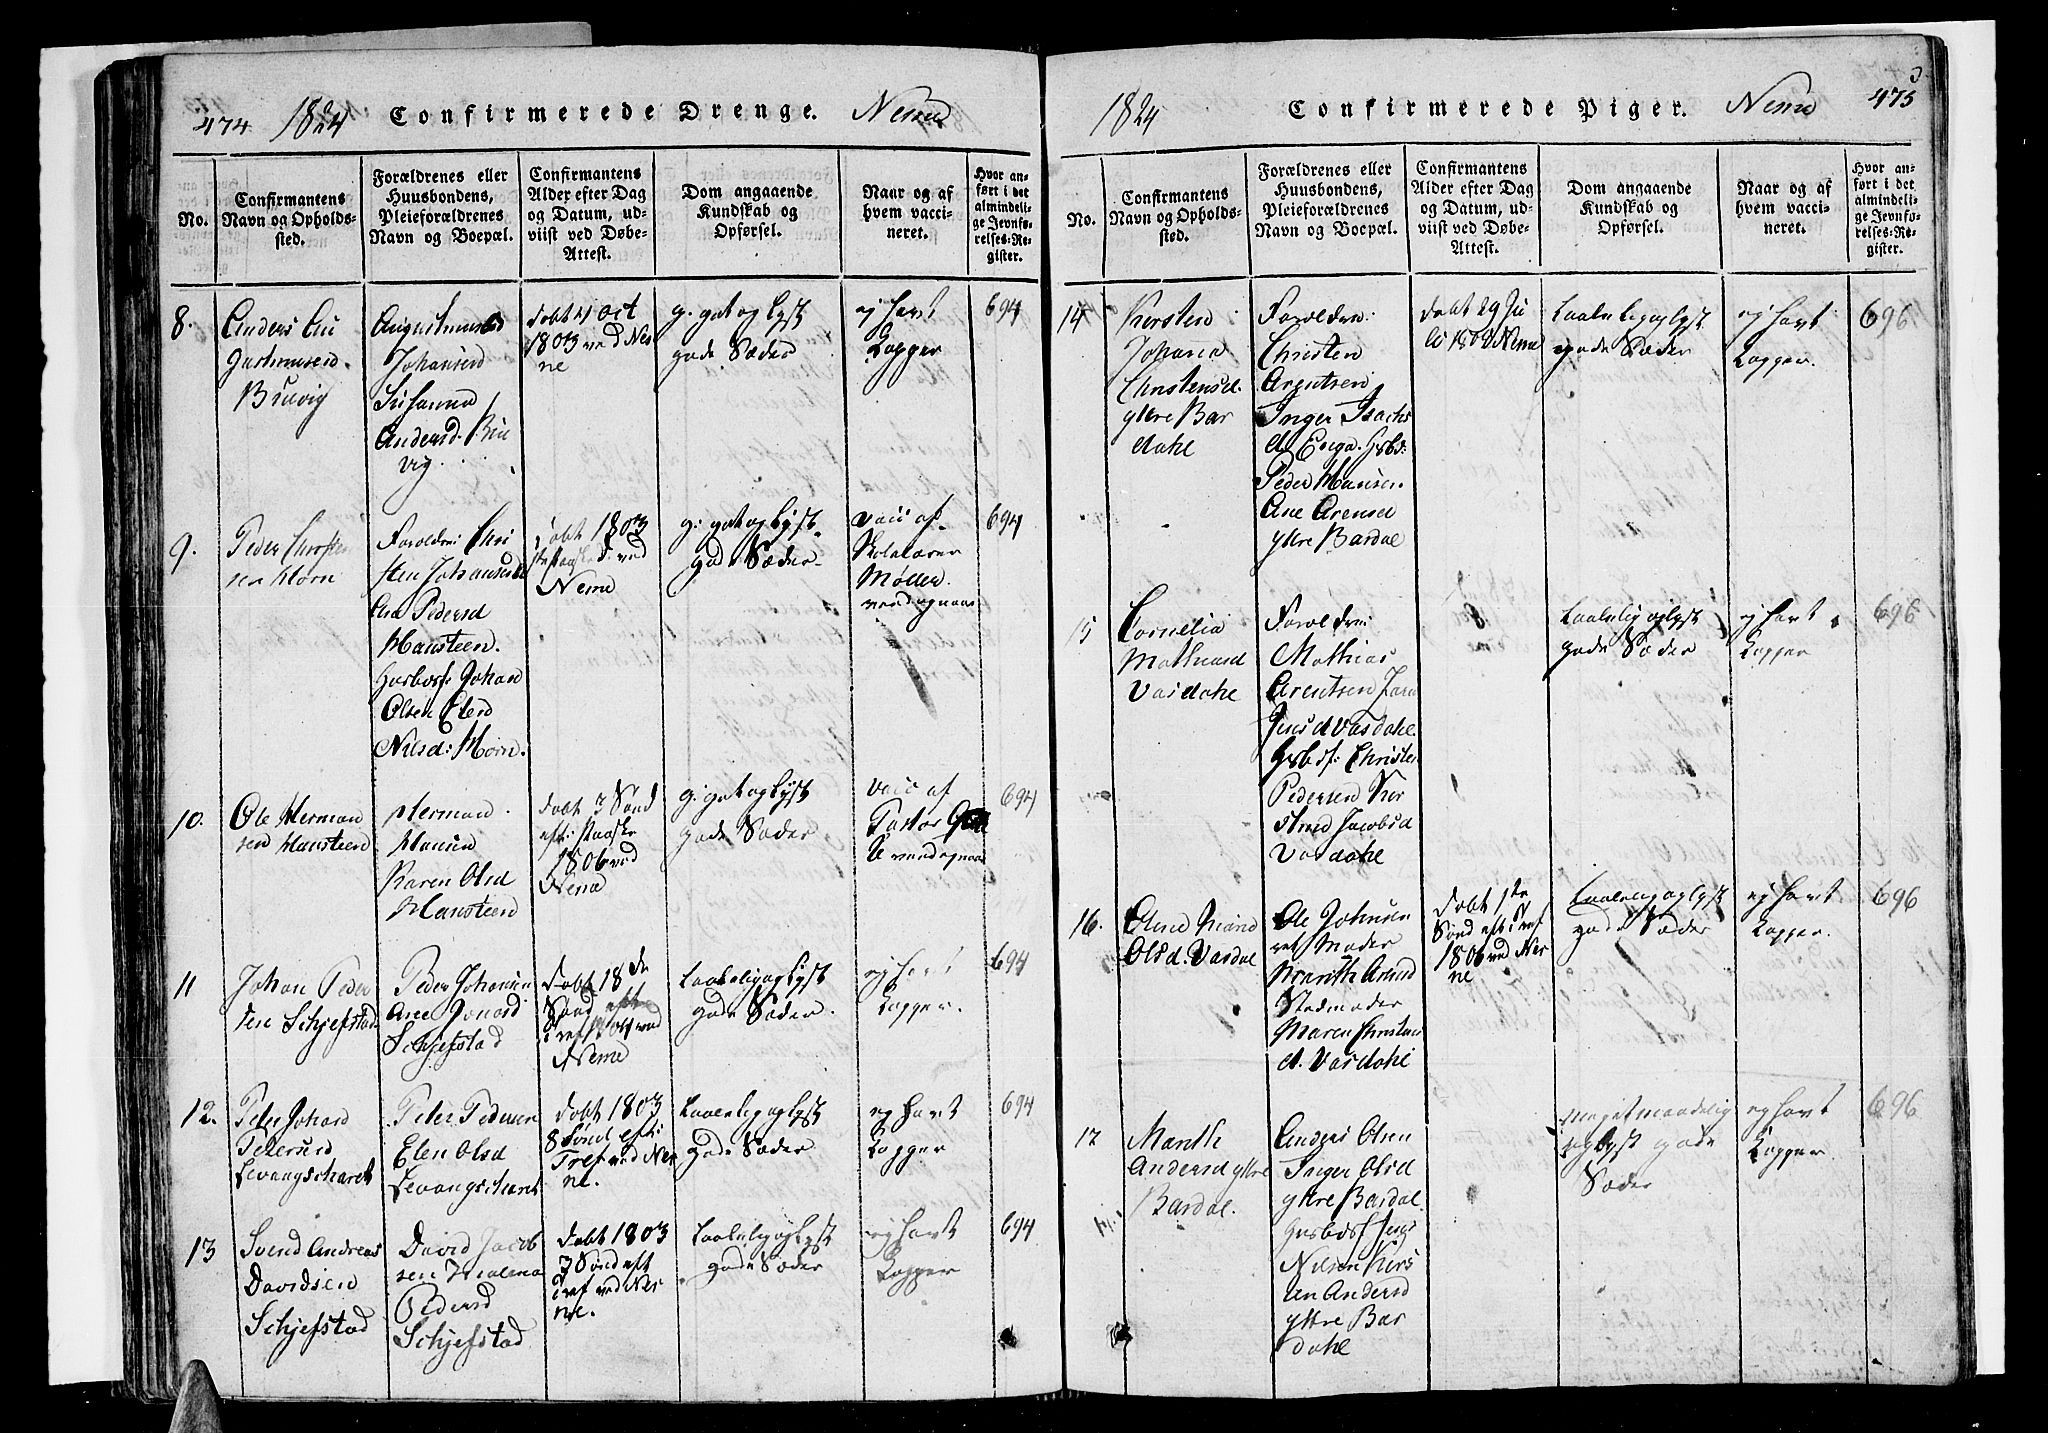 474 1824 Confirmerede Drenge. Nesne
No.
Confirmantens Navn og Opholdssted.
Forældrenes eller Huusbondens, Pleieforældrenes Navn og Boepæl.
Confirmantens Alder efter Dag og Datum, udviist ved Døbe-Attest.
Dom angaaende Kundskab og Opførsel.
Naar og af hvem vaccineret.
Hvor anført i det almindelige Jevnførelses-Register.
8.
Anders Au
gustinusen
Bruvig
Augustinus
Johansen
Susanna
Andersd. Bru
vig.
døbt 4 Oct
1803 ved Nes
ne
g: got og lyst
gode Sæder
ej havt
Kopper
694
9.
Peder Christen
sen Horn
Foreldre: Chri
sten Johansen
Ane Pedersd
Hansteen.
Husbosf: Johan
Olsen Elen
Nilsd: Horn.
døbt 1803
ved
Nesne
g: got og lyst
god Sæder
vacc af
Skolelærer
Møller.
694
10.
Ole Herman
sen Hansteen
Herman
Hansen
Karen Olsd
Hansteen
døbt 3 Sønd
eft: Paaske
1806 ved
Nesne
g: got og lyst
gode Sæder
vacc af
Pastor
694
11
Johan Peder
sen Schjefstad
Peder Johansen
Ane Jonasd
Schjefstad
Døbt 18 de
Sønd efter
ved
Nesne
Taalelig og lyst
gode Sæder.
ej havt
Kopper.
694
12.
Peder Johan
Pedersen
Levangscharet
Peder Pedersen
Elen Olsd
Levangscharet
døbt 1803
8 Sønd eft:
Tref ved Nes
ne.
Taalelig og lyst
gode Sæder
ej havt
Kopper
694
13
Svend Andreas
Davidsen
Schjefstad
David Jacob
sen
Pedersd
Schjefstad
Døbt 1803
3 Sønd eft
Tref ved Nes
ne.
Taalelig og lyst
gode Sæder
ej havt
Kopper
694
1824 Confirmerede Piger. Nesne 475
No.
Confirmantens Navn og Opholdssted.
Forældrenes eller Huusbondens, Pleieforældrenes Navn og Boepæl.
Confirmantens Alder efter Dag og Datum, udviist ved Døbe-Attest.
Dom angaaende Kundskab og Opførsel.
Naar og af hvem vaccineret.
Hvor anført i det almindelige Jevnførelses-Register.
14
Kersten
Johana
Christensd.
yttre Bar
dahl
Foreldre:
Christen
Arentsen
Inger Isachs
d: Enga. Hsbd:
Peder Hansen
Ane Arensd
yttre Bardal
døbt 29 Ju
li Nesne
Taalelig og lyst
gode Sæder
ej havt
Kopper.
696
15
Cornelia
Mathiasd
Vasdahl
Foreldre:
Mathias
Arentsen
Vasdahl
Hsbdf: Christen
Pedersen Ker
sten Jacobsd
Vasdahl
Taalelig og lyst
gode Sæder
ej havt
Kopper
696
16.
Olsd. Vasdal
Ole Johnsen
Moder
Stedmoder
Maren Christens
d. Vasdahl
døbt 1ste
Sønd eft Tref
1806 ved Nes
ne
Taalelig og lyst
gode Sæder
ej havt
Kopper.
696
17
Marith
Andersd yttre
Bardal.
Anders Olsen
Inger Olsd
yttre Bardal
Husbosf Jens
Nilsen Kers
ten Andersd
yttre Bar
dahl
meget maadelig
og lyst gode
Sæder
ej havt
Kopper
696